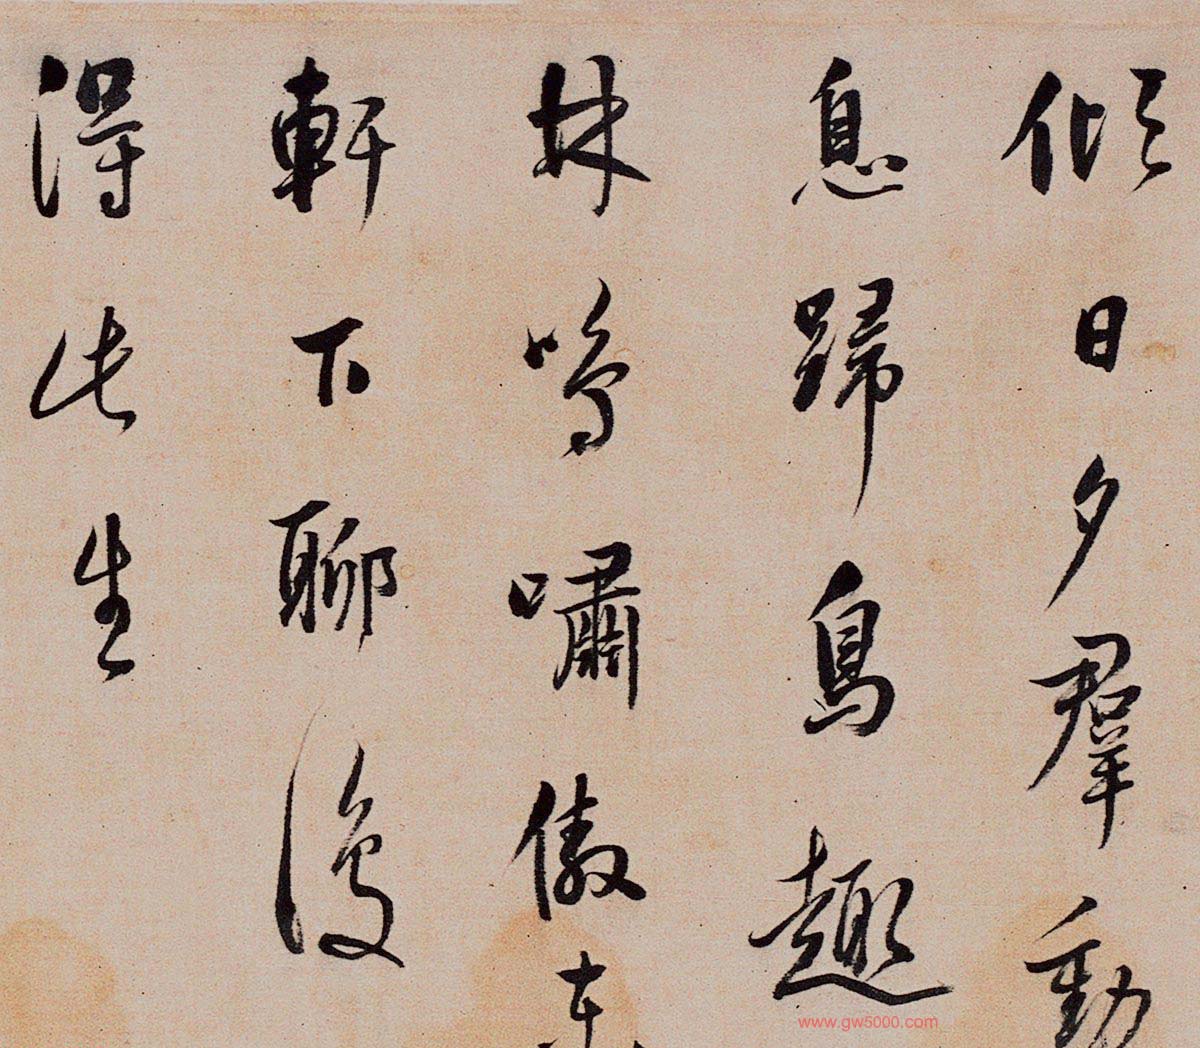 傾日夕羣動
息歸鳥趣
林鳴嘯傲東
軒下聊復
得此生
www.gw5000.com